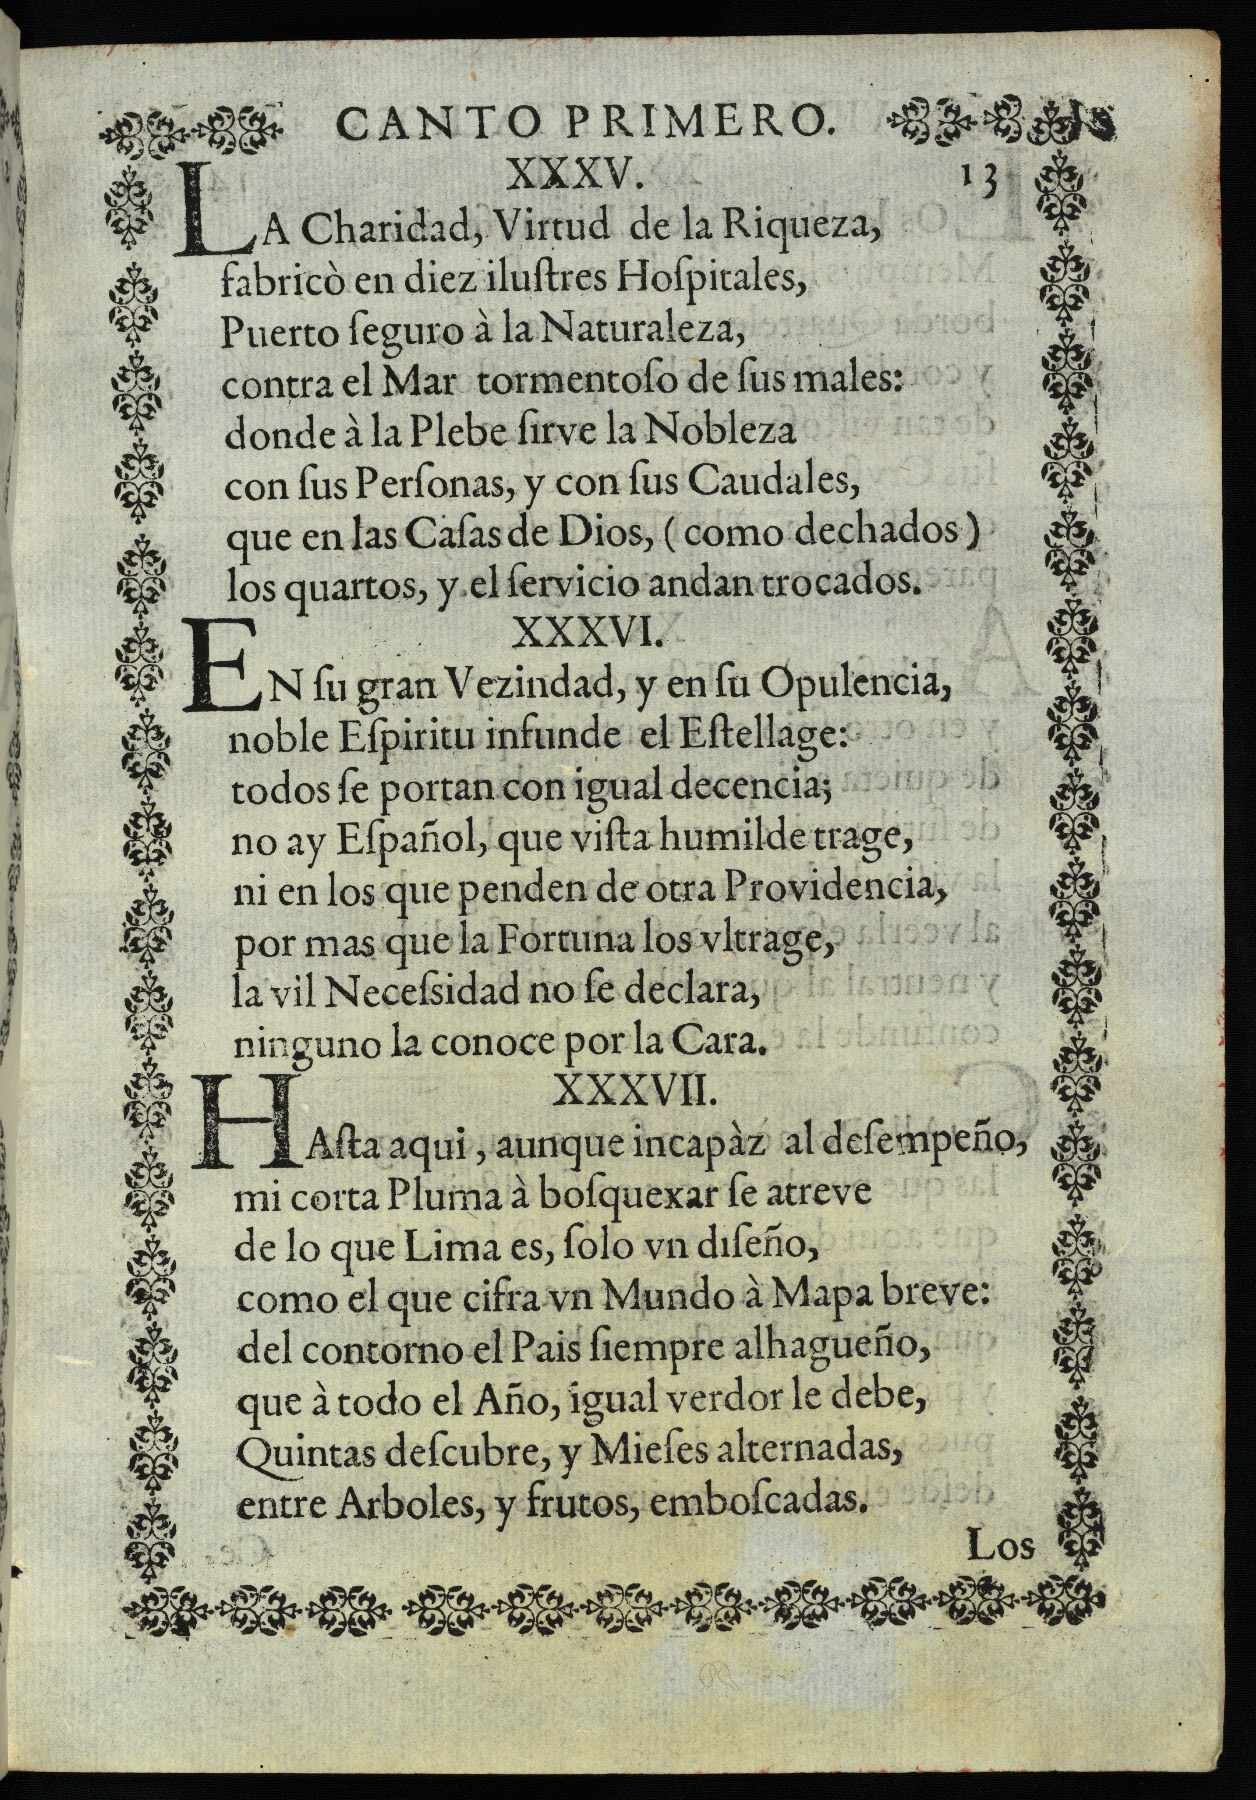 CANTO PRIMERO.
XXXV. 13
LA Charidad, Virtud de la Riqueza,
fabricò en diez iluſtres Hoſpitales,
Puerto ſeguro à la Naturaleza,
contra el Mar tormentoſo de ſus males:
donde à la Plebe ſirve la Nobleza
con ſus Perſonas, y con ſus Caudales,
que en las Caſas de Dios, (como dechados)
los quartos, y el ſervicio andan trocados.
XXXVI.
EN ſu gran Vezindad, y en ſu Opulencia,
noble Eſpiritu infunde el Eſtellage:
todos ſe portan con igual decencia;
no ay Eſpañol, que viſta humilde trage,
ni en los que penden de otra Providencia,
por mas que la Fortuna los vltrage,
la vil Neceſsidad no ſe declara,
ninguno la conoce por la Cara.
XXXVII.
HAſta aqui, aunque incapàz al deſempeño,
mi corta Pluma à boſquexar ſe atreve
de lo que Lima es, ſolo vn diſeño,
como el que cifra vn Mundo à Mapa breve:
del contorno el Pais ſiempre alhagueño,
que à todo el Año, igual verdor le debe,
Quintas deſcubre, y Mieſes alternadas,
entre Arboles, y frutos, emboſcadas.
Los